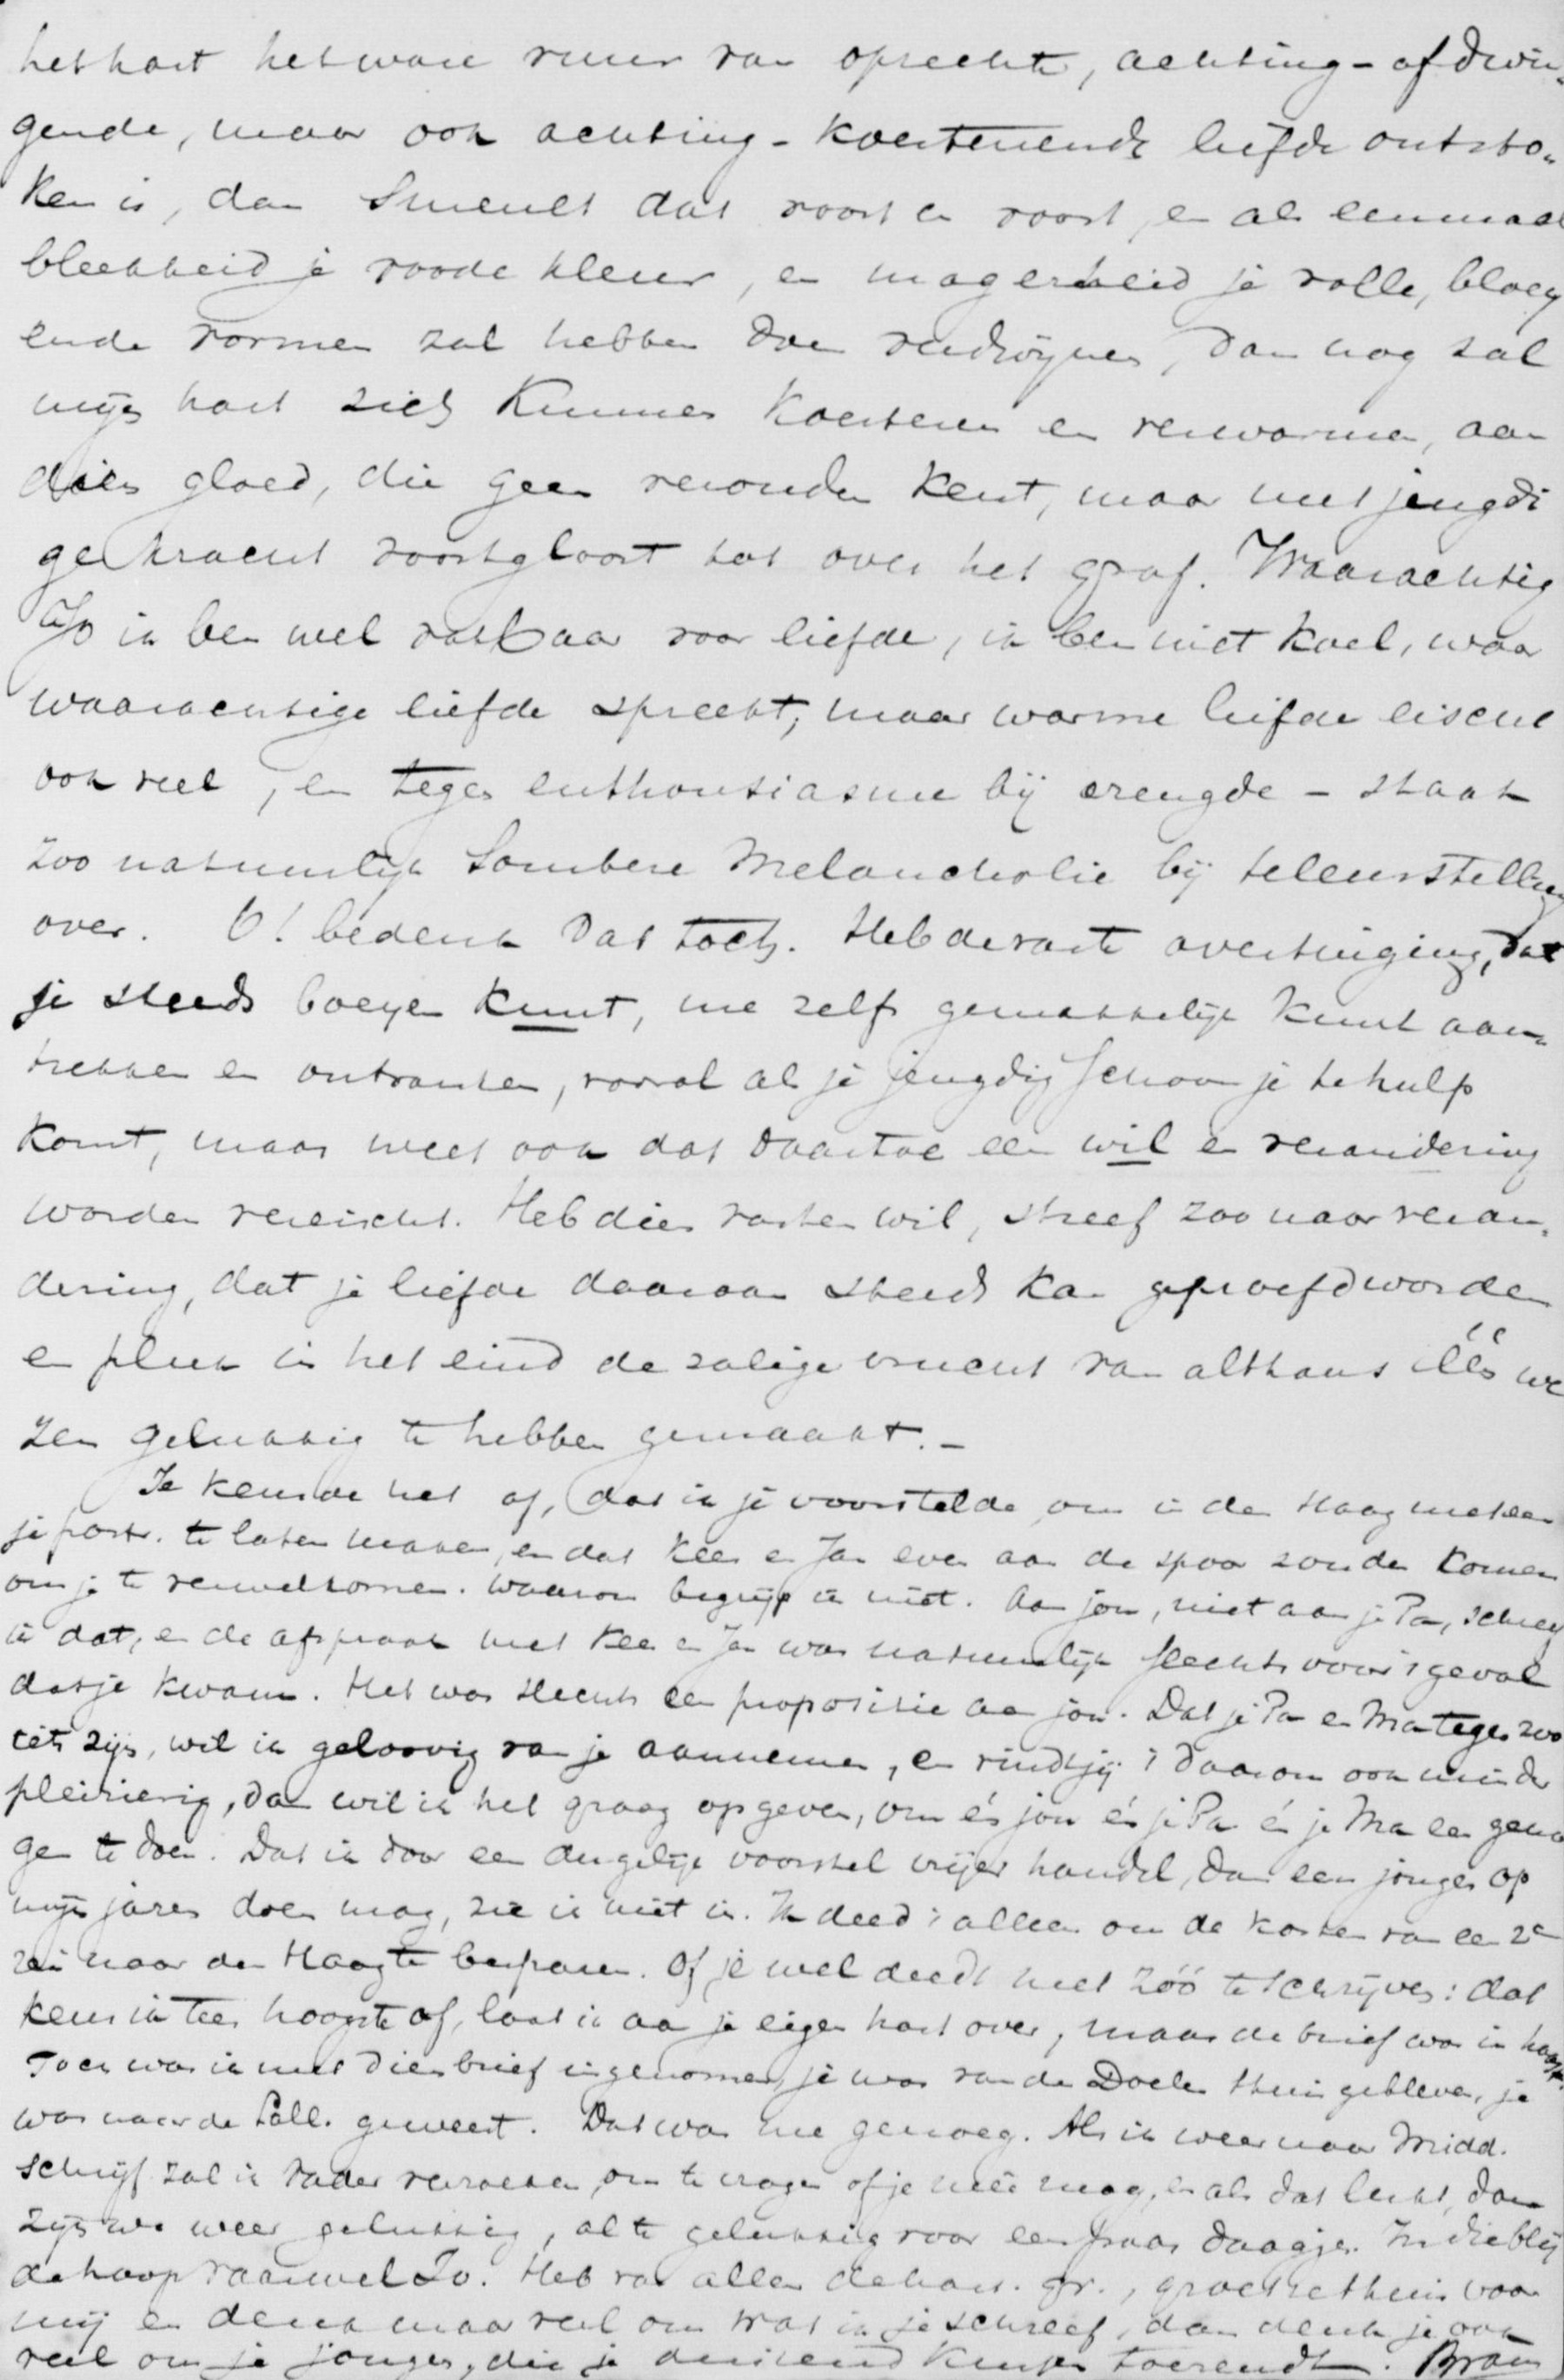 het hart het ware vuur van oprechte, achting-afdwin„
gende, maar ook achting-koesterende liefde ontsto„
ken is, dan smeult dat voort en voort, en als eenmaal
bleekheid je roode kleur, en magerheid je volle, bloey
ende vormen zal hebben doen verdwijnen, dan nog zal
mijn hart zich kunnen koesteren en verwarmen, aan
dien gloed, die geen verouden kent, maar met jeugdi
ge kracht voortgloort tot over het graf. Waarachtig
Jo ik ben wel vatbaar voor liefde, ik ben niet koel, waar
waarachtige liefde spreekt, maar warme liefde eischt
ook veel, en tegen enthousiasme bij vreugde - staat
zoo natuurlijk sombere melancholie bij teleurstelling
over. O! bedenk dat toch. Heb de vaste overtuiging, dat
je steeds boeyen kunt, me zelfs gemakkelijk kunt aan„
trekken en ontvonken, vooral als je jeugdig schoon je te hulp
komt, maar weet ook dat daartoe een wil en verandering
worden vereischt. Heb dien vasten wil, streef zoo naar veran„
dering, dat je liefde daaraan steeds kan geproefd worden
en pluk in het eind de zalige vrucht van althans één we
zen gelukkig te hebben gemaakt. -
Je keurde het af, dat ik je voorstelde om in den Haag meteen
je portr. te laten maken, en dat Kee en Jan even aan de spoor zouden komen
om je te verwelkomen. Waarom begrijp ik niet. Aan jou, niet aan je Pa, schreef
ik dat, en de afspraak met Kee en Jan was natuurlijk slechts voor 't geval
dat je kwam. Het was slechts een propositie aan jou. Dat je Pa en Ma tegen zoo
iets zijn, wil ik geloovig van je aannemen, en vindt jij 't daarom ook minder
pleizierig, dan wil ik het graag opgeven, om én jou én je Pa én je Ma een genoe
gen te doen. Dat ik door een dergelijk voorstel vrijer handel, dan een jongen op
mijn jaren doen mag, zie ik niet in. Ik deed 't alleen om de kosten van een 2e
reis naar den Haag te besparen. Of je wel deedt met zóó te schrijven: dat
keur ik ten hoogste af, laat ik aan je eigen hart over, maar de brief was in haast.
Toch was ik met dien brief ingenomen, je was van de Doelen thuis gebleven, je
was naar de Coll. geweest. Dat was me genoeg. Als ik weer naar Midd.
schrijf zal ik Vader verzoeken, om te vragen of je méé mag, en als dat lukt, dan
zijn we weer gelukkig, al te gelukkig voor een paar daagjes. In die blij
de hoop vaarwel Jo. Heb van allen de hart. gr., groet ze thuis voor
mij en denk maar veel om wat ik je schreef, dan denk je ook
veel om je jongen, die je duizend kusjes toezendt. Bram